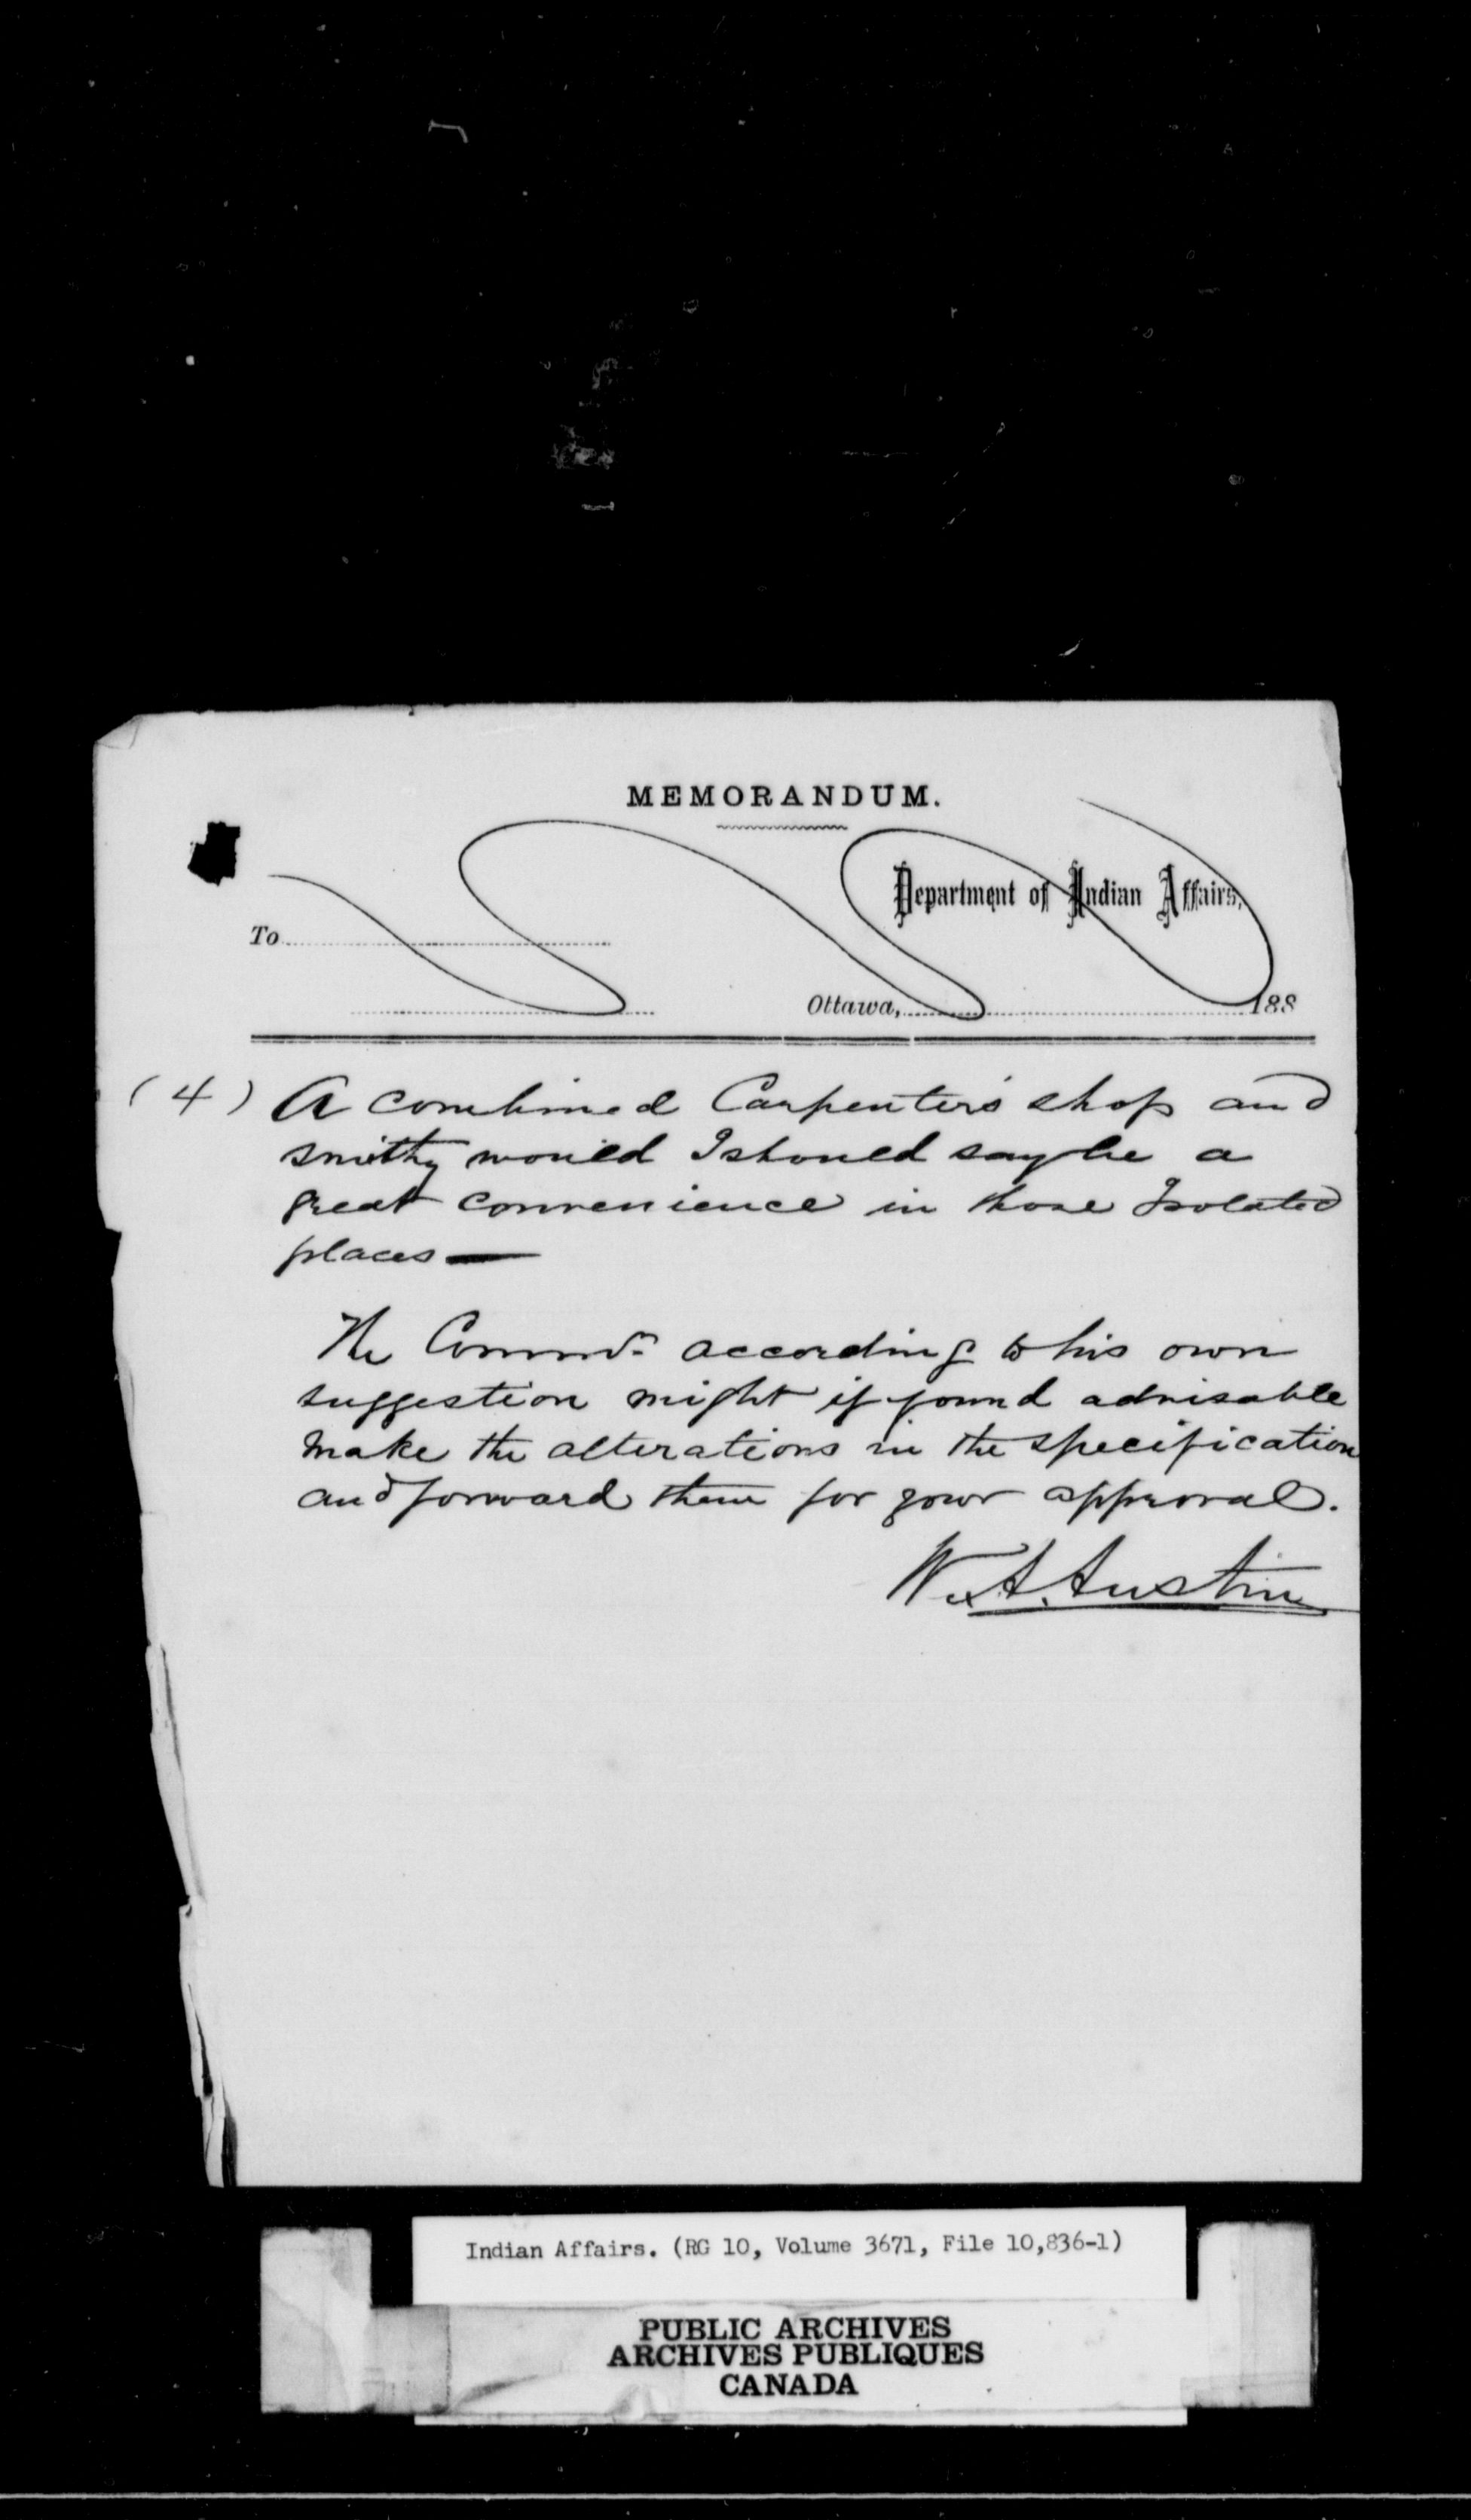 MEMORANDUM.
Department of Indian Affairs,
To
Ottawa, 188
(4) A combined Carpenter's shop and
smithy would I should say be a
great convenience in those Isolated
places —
The Commr. according to his own
suggestion might if found advisable
make the alterations in the specification
and forward them for your approval.
W. A. Austin
Indian Affairs. (RG 10, Volume 3671, File 10,836-1)
PUBLIC ARCHIVES
ARCHIVES PUBLIQUES
CANADA